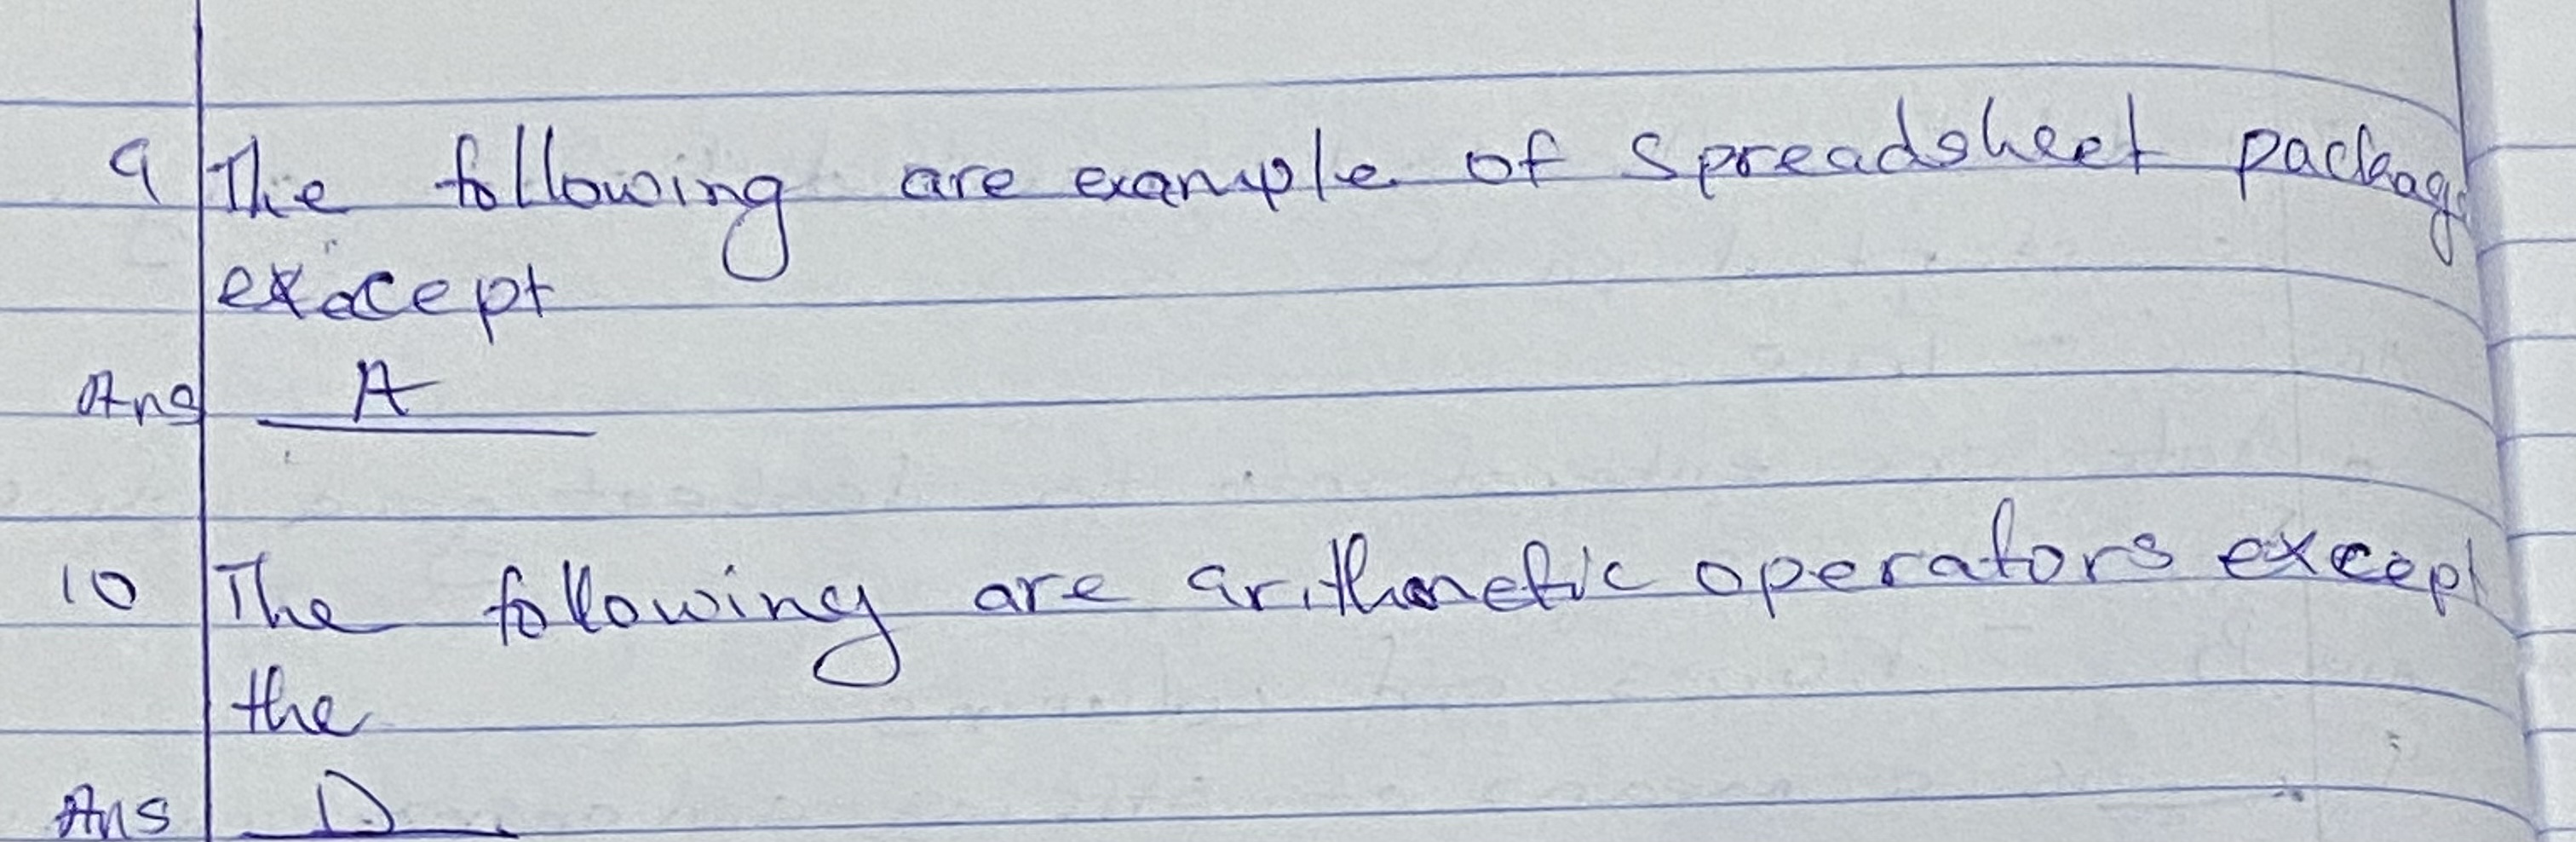 9 The following are example of spreadsheet package
except
Ans A
10 The following are arithmetic operators except
the
Ans D